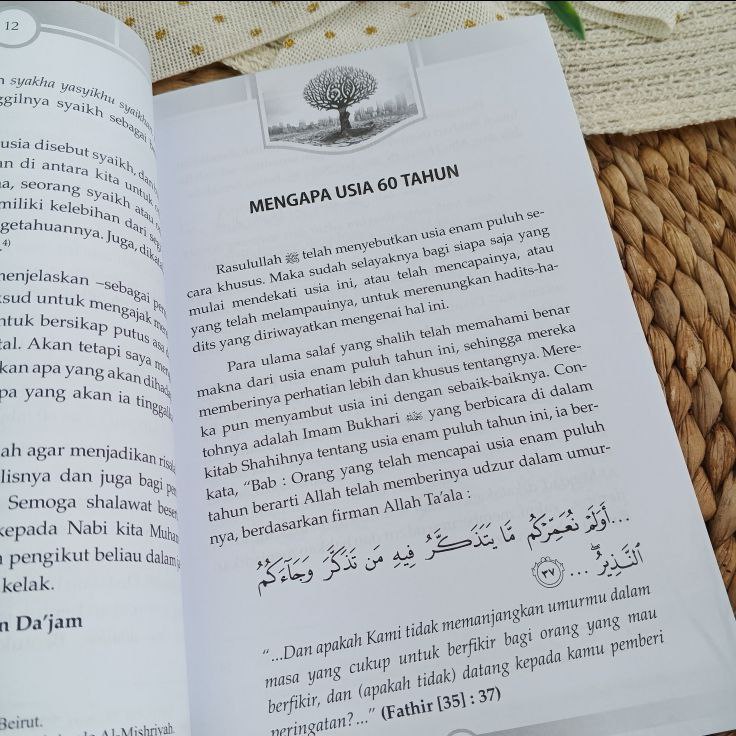 12
syakha yasyikhu
ggilnya syaikh sebagai
usia disebut syaikh, dan
an di antara kita untuk
a, seorang syaikh atau
miliki kelebihan dari
getahuannya. Juga,
4)
menjelaskan –sebagai
ksud untuk mengajak
ntuk bersikap putus
al. Akan tetapi saya
kan apa yang akan
pa yang akan ia
ah agar menjadikan
lisnya dan juga bagi
Semoga shalawat
kepada Nabi kita
pengikut beliau dalam
kelak.
n Da'jam
Beirut.
Al-Mishriyah.
MENGAPA USIA 60 TAHUN
Rasulullah ﷺ telah menyebutkan usia enam puluh se-
cara khusus. Maka sudah selayaknya bagi siapa saja yang
mulai mendekati usia ini, atau telah mencapainya, atau
yang telah melampauinya, untuk merenungkan hadits-ha-
dits yang diriwayatkan mengenai hal ini.
Para ulama salaf yang shalih telah memahami benar
makna dari usia enam puluh tahun ini, sehingga mereka
memberinya perhatian lebih dan khusus tentangnya. Mere-
ka pun menyambut usia ini dengan sebaik-baiknya. Con-
tohnya adalah Imam Bukhari yang berbicara di dalam
kitab Shahihnya tentang usia enam puluh tahun ini, ia ber-
kata, "Bab : Orang yang telah mencapai usia enam puluh
tahun berarti Allah telah memberinya udzur dalam umur-
nya, berdasarkan firman Allah Ta'ala :
...أَوَلَمْ نُعَمِّرْكُم مَّا يَتَذَكَّرُ فِيهِ مَن تَذَكَّرَ وَجَآءَكُمُ
ٱلنَّذِيرُ ۖ ... ٣٧
"...Dan apakah Kami tidak memanjangkan umurmu dalam
masa yang cukup untuk berfikir bagi orang yang mau
berfikir, dan (apakah tidak) datang kepada kamu pemberi
peringatan?..." (Fathir [35] : 37)